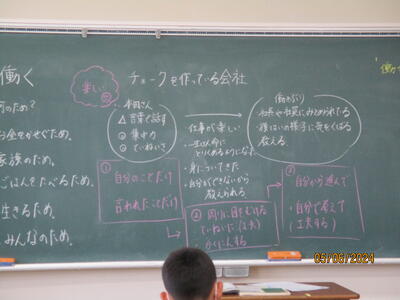 働く
何のため?
お金をかせぐため。
家族のため。
ごはんをたべるため。
生きるため。
みんなのため。
楽しい
チョークを作っている会社
本田さん
△ 言葉で話す
◎ 集中力
◎ ていねいさ
仕事が楽しい
一生けん命に
とりくめるようになった
・身についてきた
自分ができないから
教えられる
働きぶり
社長や社員にみとめられる
後はいの様子に気をくばる
教える
①
自分のことだけ
言われたことだけ
② 周りに目をむける
ていねいに(工夫)
かくにんする
③
自分から進んで
・自分で考えて
(工夫する)
「働
05/05/2024